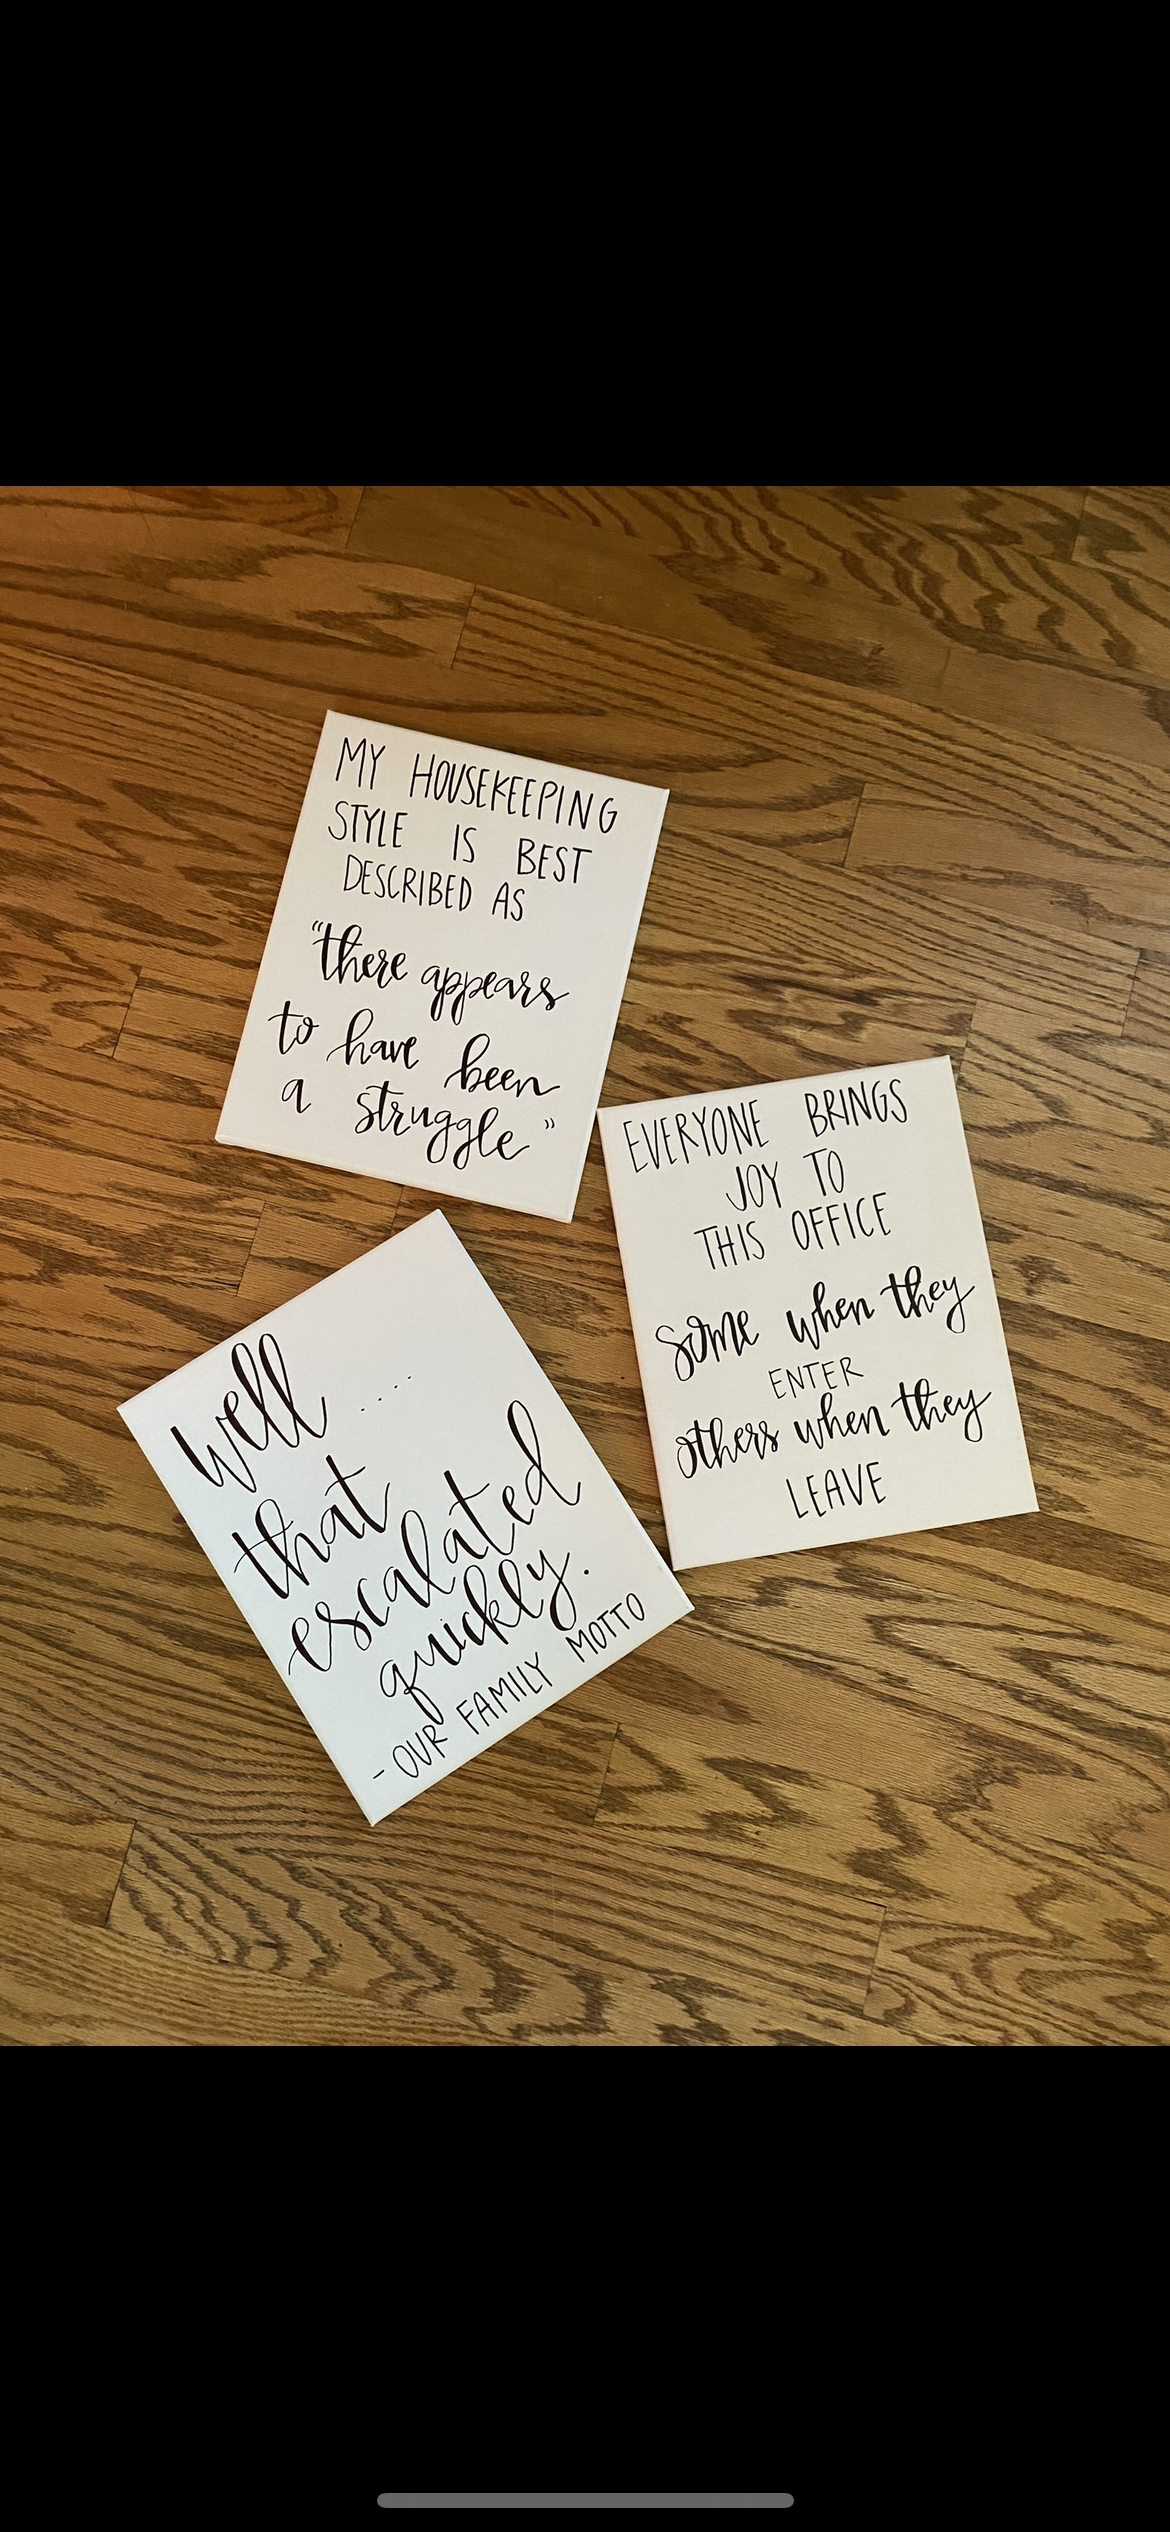 MY HOUSEKEEPING
STYLE IS BEST
DESCRIBED AS
"there appears
to have been
a struggle"
EVERYONE BRINGS
JOY TO
THIS OFFICE
some when they
ENTER
others when they
LEAVE
well ....
that
escalated
quickly.
- OUR FAMILY MOTTO